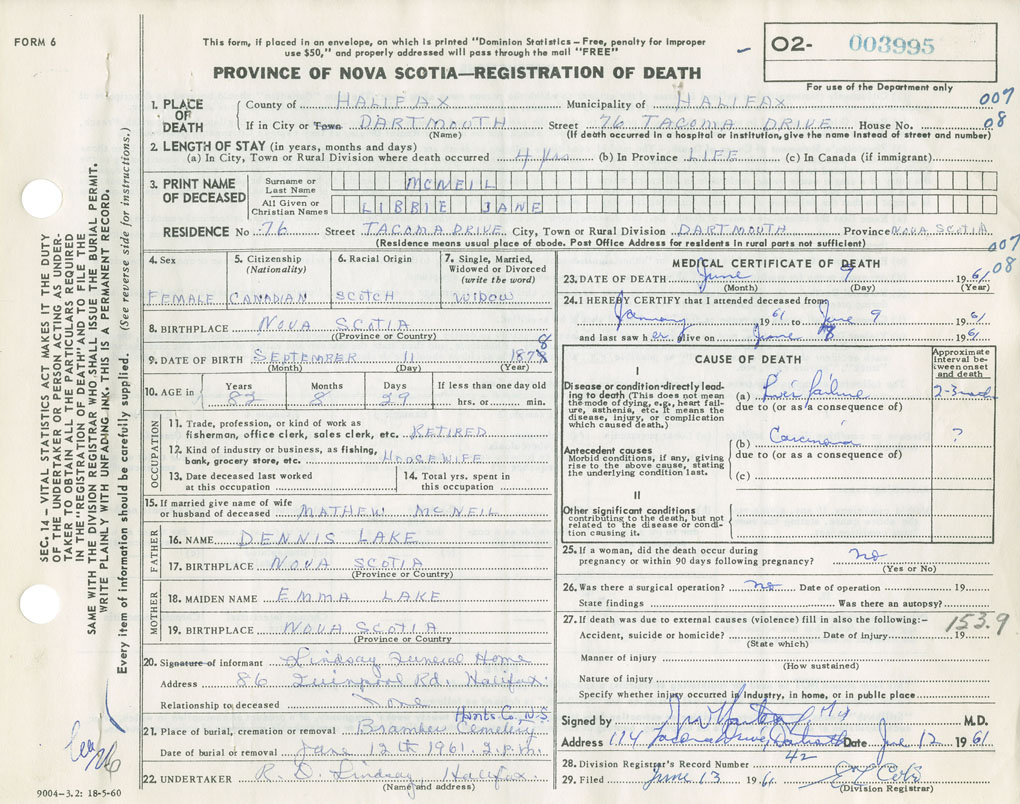 FORM 6
This form, if placed in an envelope, on which is printed "Dominion Statistics – Free, penalty for improper
use $50," and properly addressed will pass through the mail "FREE"
PROVINCE OF NOVA SCOTIA—REGISTRATION OF DEATH
O2- 003995
For use of the Department only
007
08
1. PLACE OF DEATH
County of HALIFAX Municipality of HALIFAX
If in City or Town DARTMOUTH Street 76 TACOMA DRIVE House No.
(Name) (If death occurred in hospital or institution, give the name instead of street and number)
2. LENGTH OF STAY (in years, months and days)
(a) In City, Town or Rural Division where death occurred 4 yrs (b) In Province LIFE (c) In Canada (if immigrant)
3. PRINT NAME OF DECEASED
Surname or Last Name MCNEIL
All Given or Christian Names LIBBIE JANE
RESIDENCE No. 76 Street TACOMA DRIVE City, Town or Rural Division DARTMOUTH Province NOVA SCOTIA
(Residence means usual place of abode. Post Office Address for residents in rural parts not sufficient)
007
08
4. Sex
FEMALE
5. Citizenship
(Nationality)
CANADIAN
6. Racial Origin
SCOTCH
7. Single, Married,
Widowed or Divorced
(write the word)
WIDOW
8. BIRTHPLACE NOVA SCOTIA
(Province or Country)
9. DATE OF BIRTH SEPTEMBER 11 1878
(Month) (Day) (Year)
10. AGE in
Years Months Days If less than one day old
82 8 29 hrs. or min.
OCCUPATION
11. Trade, profession, or kind of work as
fisherman, office clerk, sales clerk, etc. RETIRED
12. Kind of industry or business, as fishing,
bank, grocery store, etc. HOUSEWIFE
13. Date deceased last worked
at this occupation
14. Total yrs. spent in
this occupation
15. If married give name of wife
or husband of deceased MATHEW MCNEIL
FATHER
16. NAME DENNIS LAKE
17. BIRTHPLACE NOVA SCOTIA
(Province or Country)
MOTHER
18. MAIDEN NAME EMMA LAKE
19. BIRTHPLACE NOVA SCOTIA
(Province or Country
20. Signature of informant Lindsay Funeral Home
Address 86 Quinpool Rd. Halifax.
Relationship to deceased None
Hants Co., N.S.
21. Place of burial, cremation or removal Cemetery
Date of burial or removal June 12th 1961. 2.p.m.
22. UNDERTAKER R. D. Lindsay, Halifax.
(Name and address)
9004-3.2: 18-5-60
MEDICAL CERTIFICATE OF DEATH
23. DATE OF DEATH June 9 1961
(Month) (Day) (Year)
24. I HEREBY CERTIFY that I attended deceased from
January 1961 to June 9 1961
and last saw her alive on June 8 1961
CAUSE OF DEATH
Approximate
interval be-
tween onset
and death
I
Disease or condition directly lead-
ing to death (This does not mean
the mode of dying, e.g., heart fail-
ure, asthenia, etc. It means the
disease, injury, or complication
which caused death.)
(a) Liver failure 2-3
due to (or as a consequence of)
(b) Carcinoma ?
due to (or as a consequence of)
Antecedent causes
Morbid conditions, if any, giving
rise to the above cause, stating
the underlying condition last.
(c)
II
Other significant conditions
contributing to the death, but not
related to the disease or condi-
tion causing it.
25. If a woman, did the death occur during
pregnancy or within 90 days following pregnancy? no
(Yes or No)
26. Was there a surgical operation? no Date of operation 19
State findings Was there an autopsy?
27. If death was due to external causes (violence) fill in also the following:–
153.9
Accident, suicide or homicide? Date of injury 19
(State which)
Manner of injury
(How sustained)
Nature of injury
Specify whether injury occurred in Industry, in home, or in public place
Signed by M.D.
Address 114 Tacoma Drive, Dartmouth Date June 12 1961
28. Division Registrar's Record Number 42
29. Filed June 13 1961
(Division Registrar)
SEC. 14 – VITAL STATISTICS ACT MAKES IT THE DUTY
OF THE UNDERTAKER OR PERSON ACTING AS UNDER-
TAKER TO OBTAIN ALL THE PARTICULARS REQUIRED
IN THE "REGISTRATION OF DEATH" AND TO FILE THE
SAME WITH THE DIVISION REGISTRAR WHO SHALL ISSUE THE BURIAL PERMIT.
WRITE PLAINLY WITH UNFADING INK. THIS IS A PERMANENT RECORD.
Every item of information should be carefully supplied. (See reverse side for instructions.)